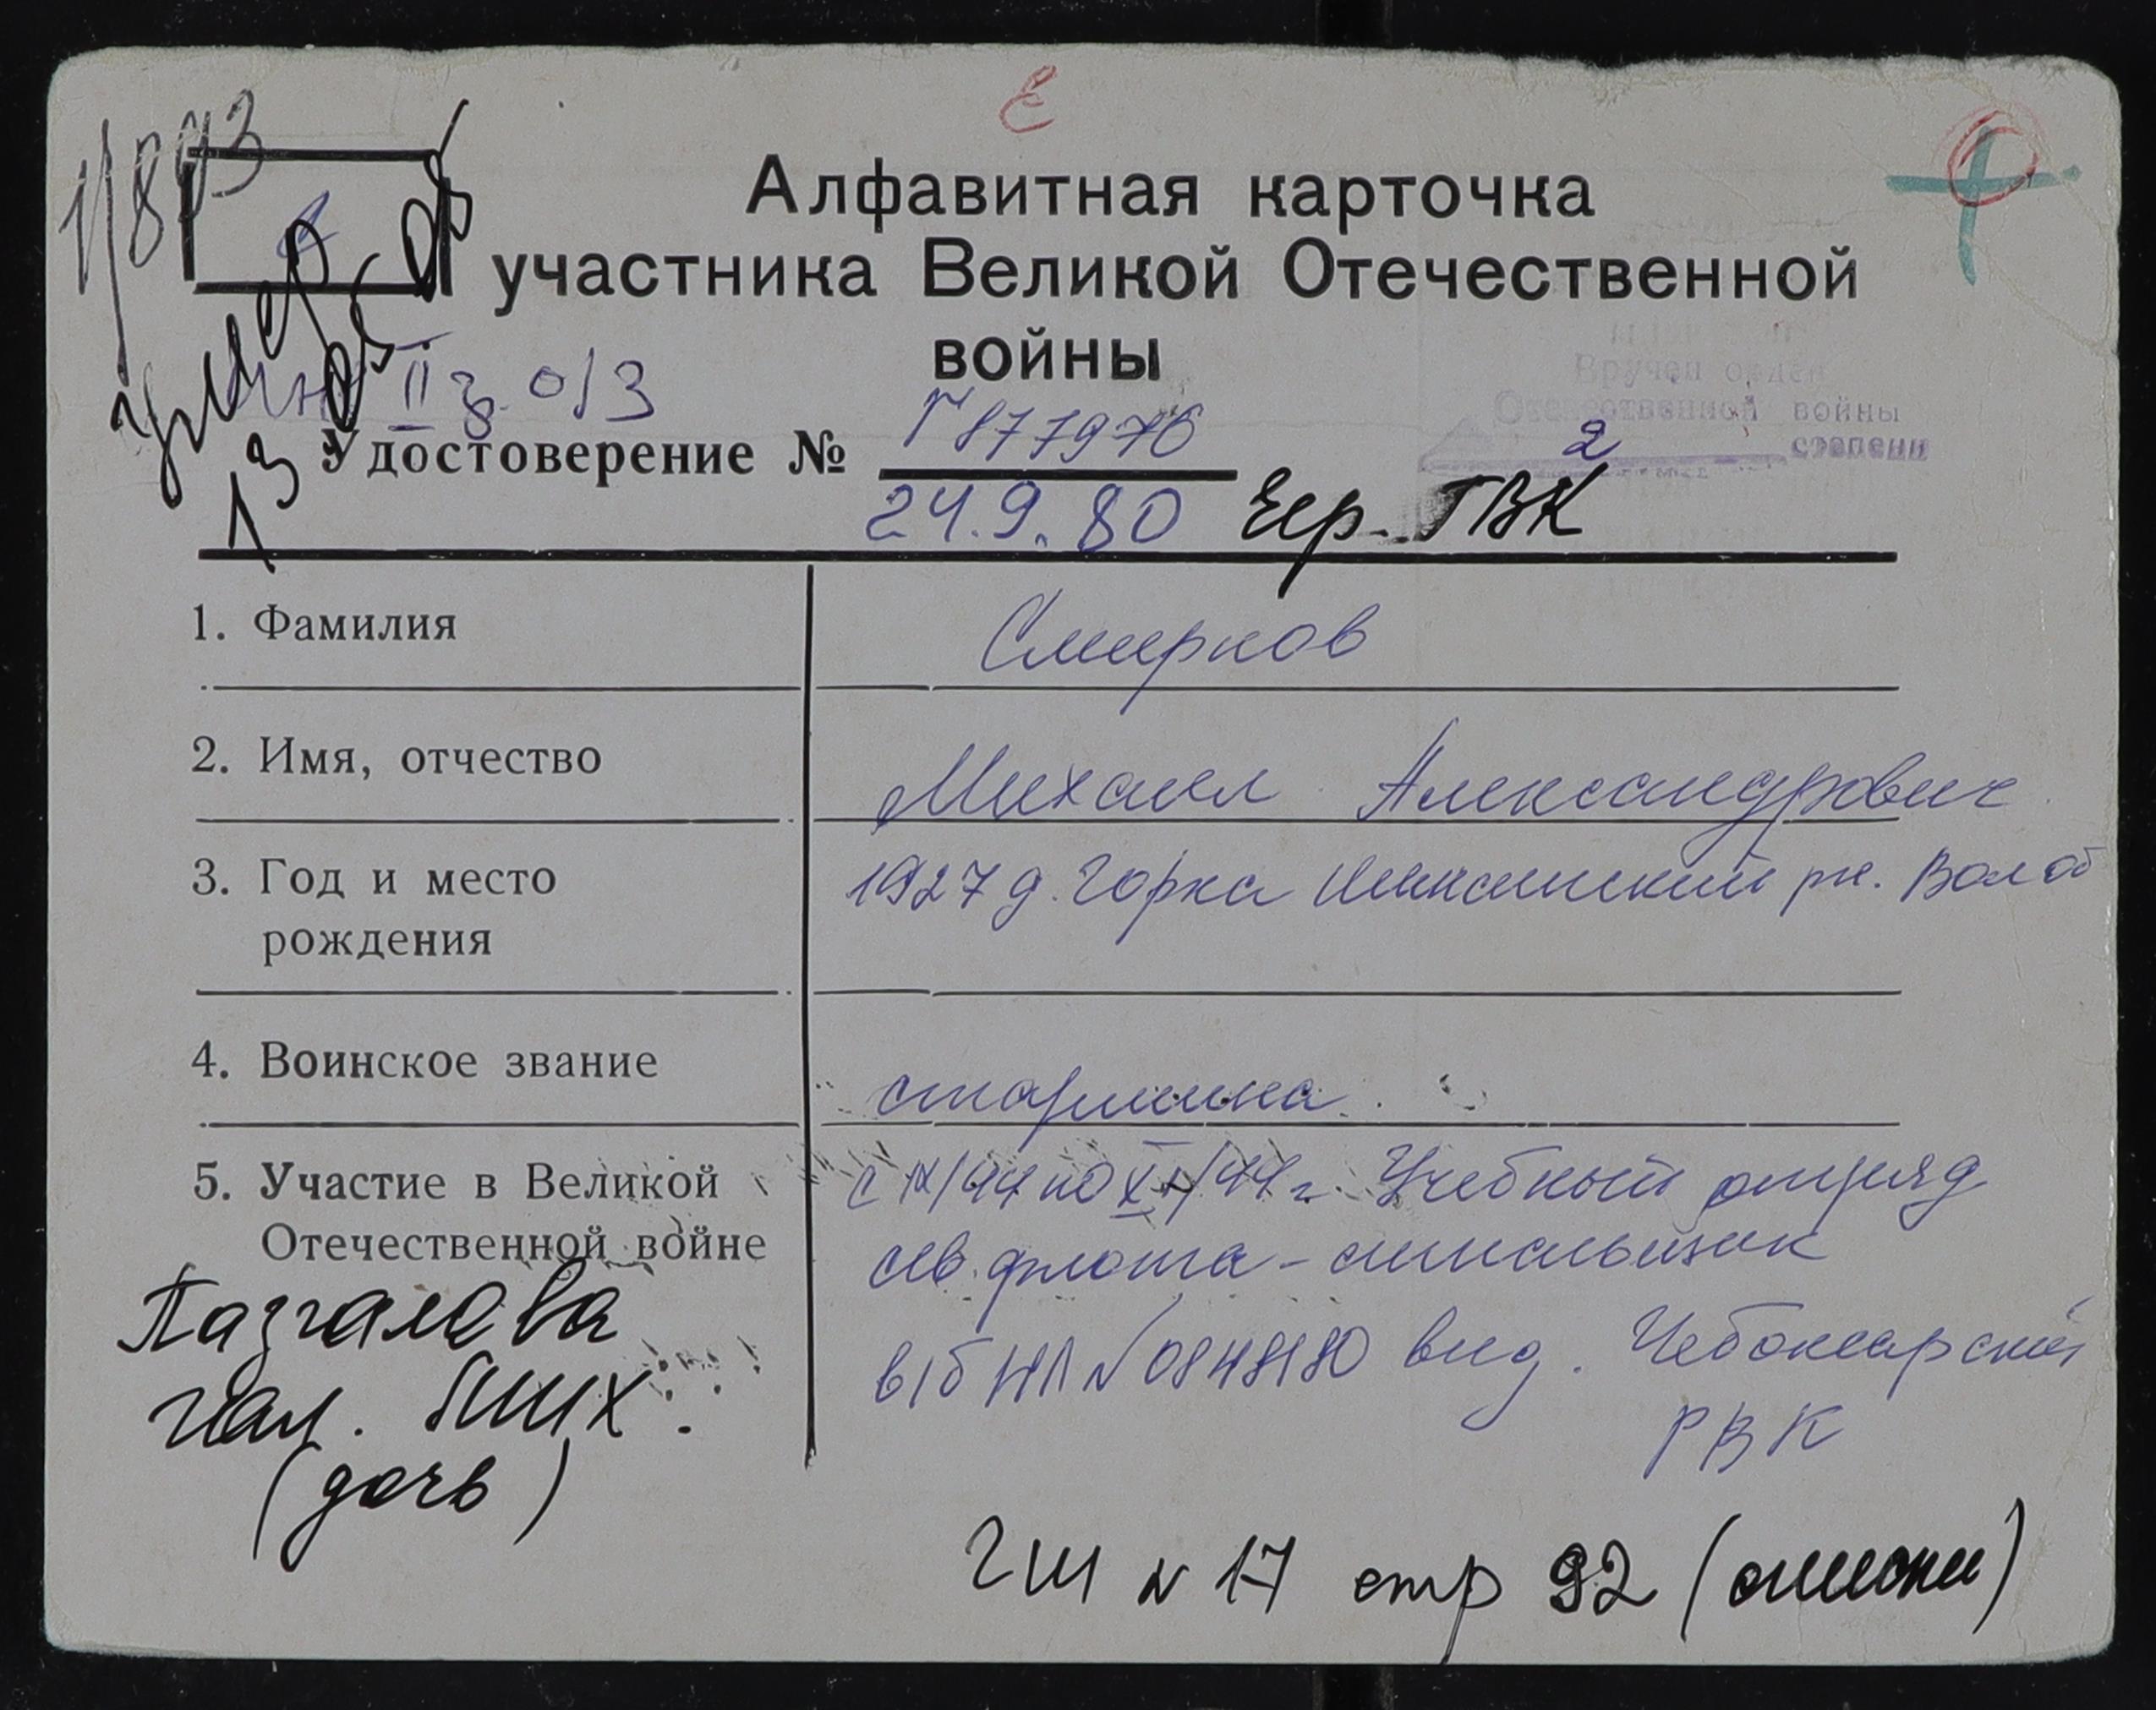 Алфавитная карточка
участника Великой Отечественной
войны
11893
умер
13 05 06
II гр. 013
Вручен орден
Отечественной войны
2 степени
Удостоверение № Г 877976
24.9.80 Чер. ГВК
1. Фамилия Смирнов
2. Имя, отчество Михаил Александрович
3. Год и место 1927 д. Горка рн. Вол об
рождения
4. Воинское звание старшина
5. Участие в Великой с IV/44 по XI/44 г. Учебный отряд
Отечественной войне сев. флота - сигнальщик
в/б НЛ № 0848180 выд. Чебоксарский
РВК
Пазгалева
Гал. Мих.
(дочь)
ГШ № 17 стр 92 (списки)